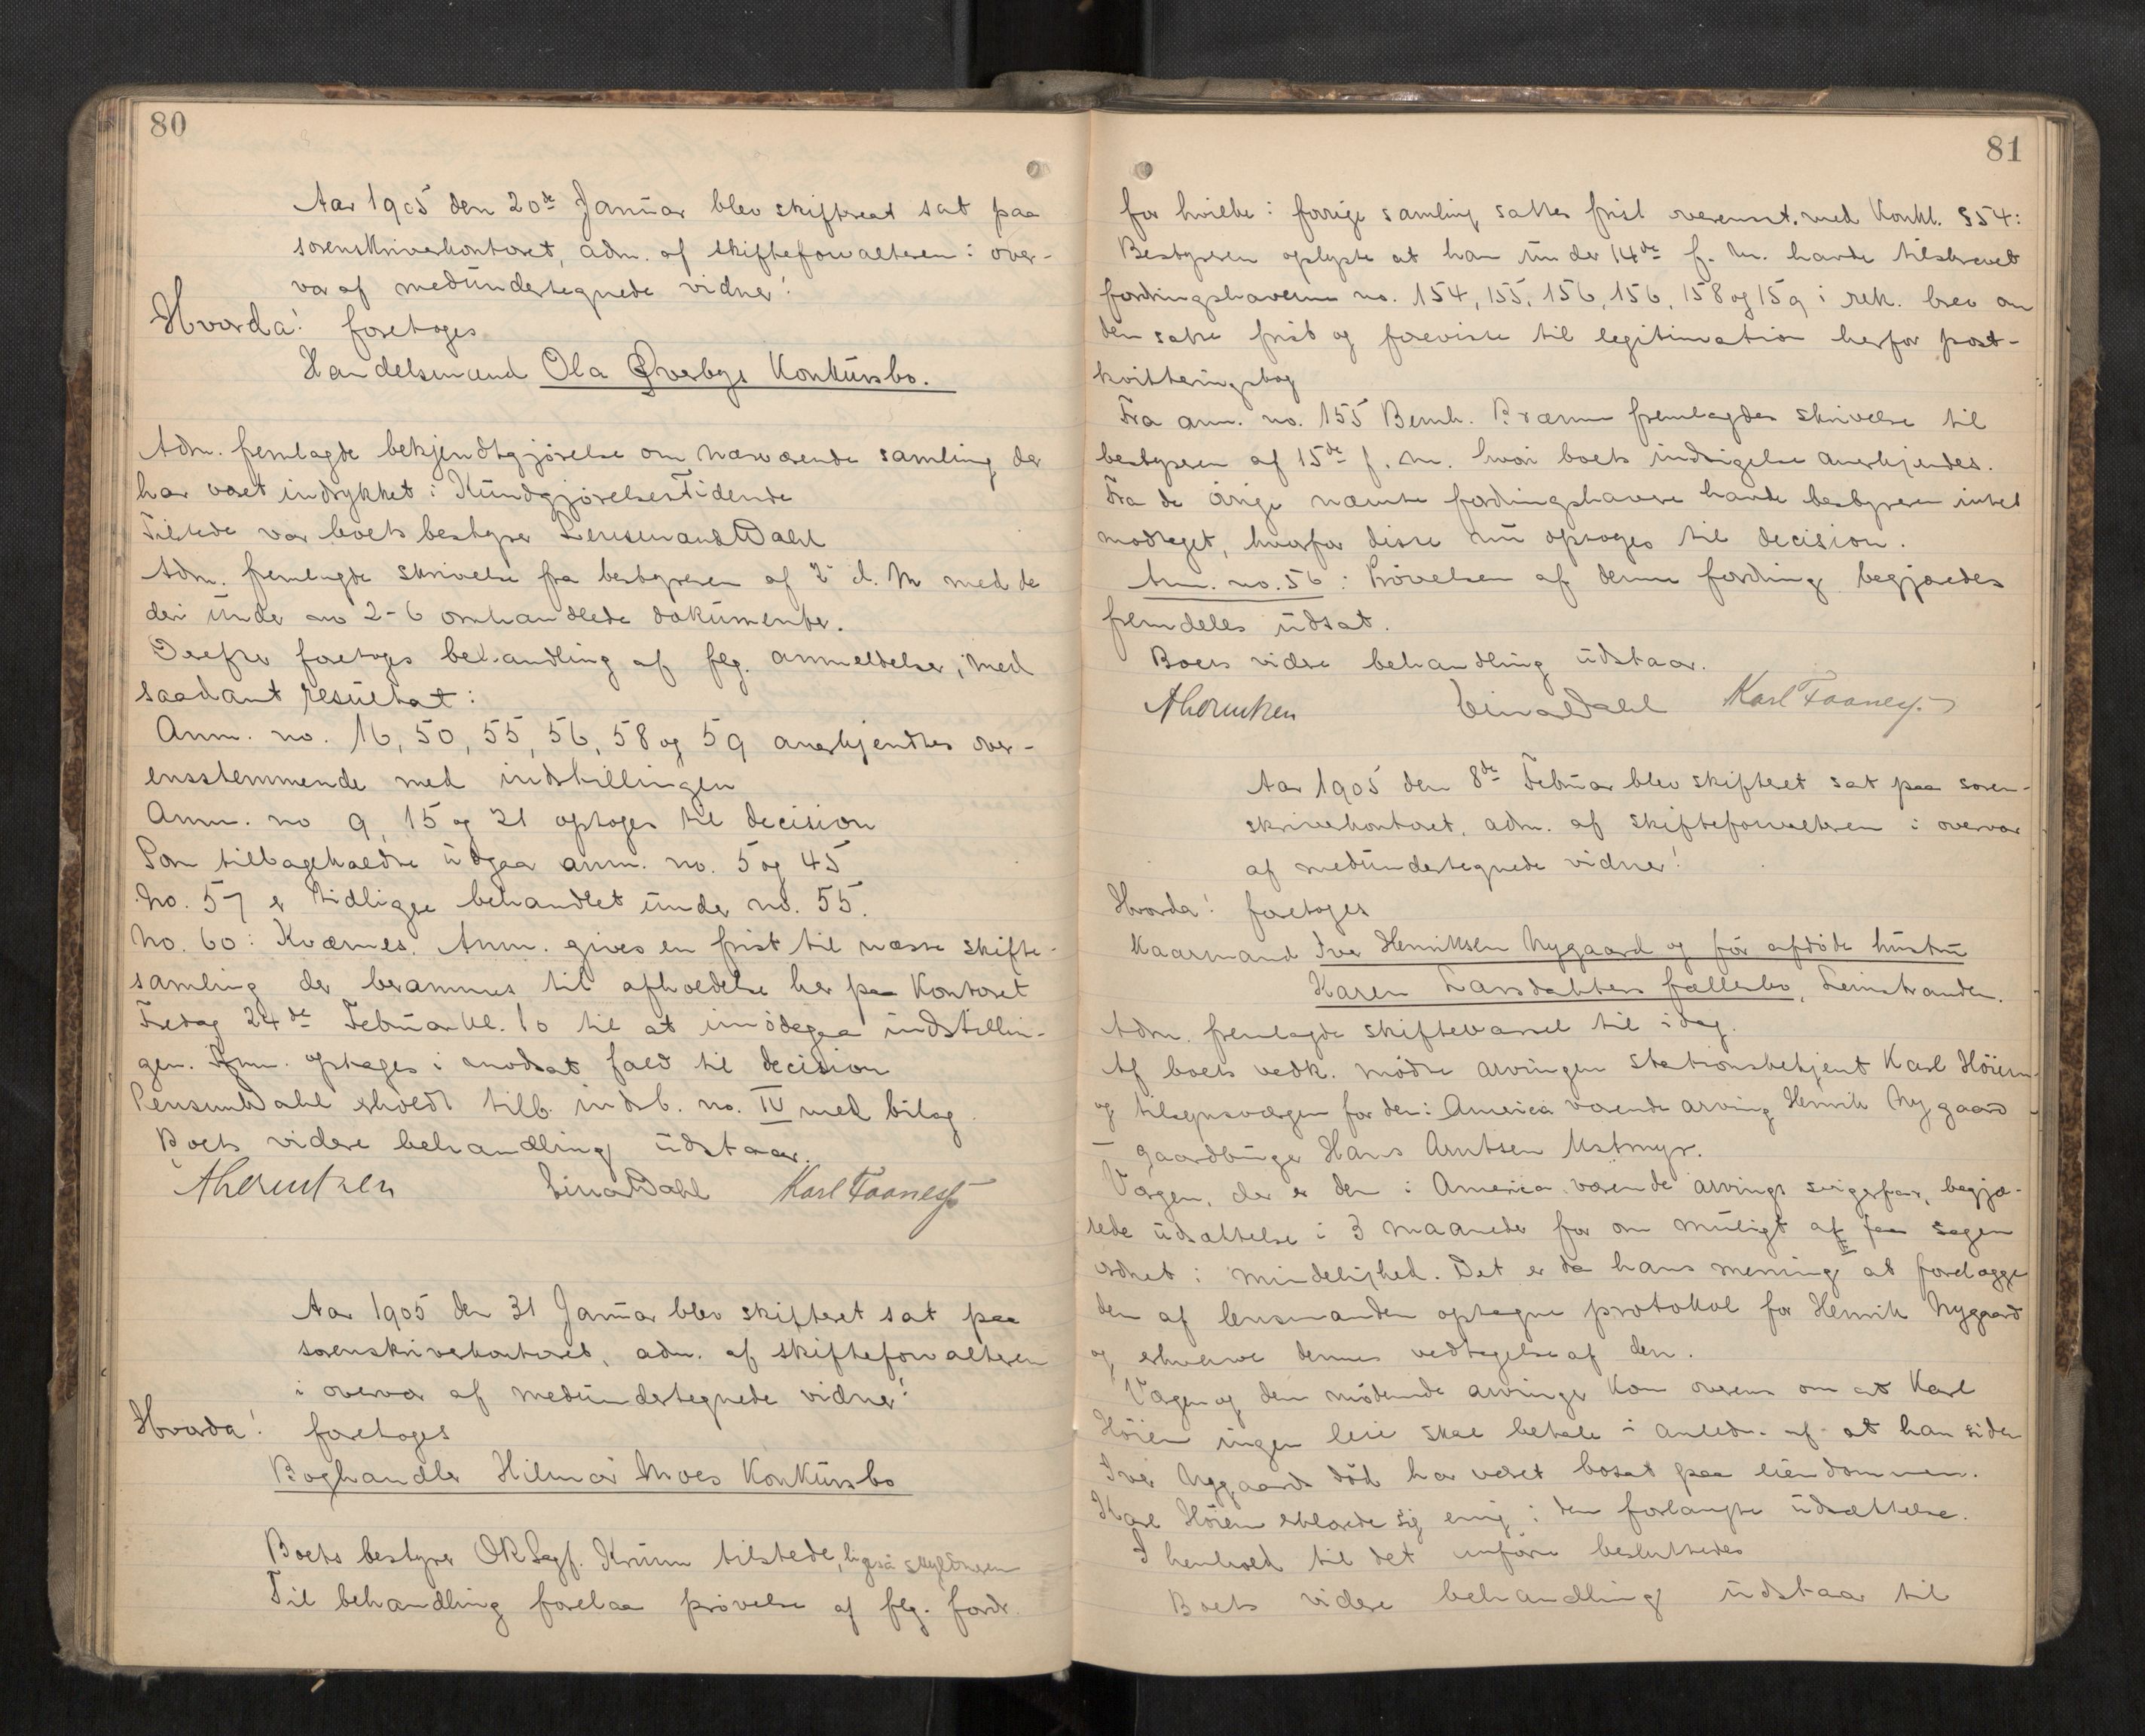 80
Aar 1905 den 20de Januar blev skifteret sat paa
sorenskriverkontoret, adm. af skifteforvalteren i over-
vær af medundertegnede vidner:
Hvorda! foretoges
Handelsmand Ola Øverbys Konkursbo.
Adm. fremlagde bekjendtgjørelse om nærværende samling der
har været indrykket i Kundgjørelsestidende
Tilstede var boets bestyrer Lensmand Dahl
Adm. fremlagde skrivelse fra bestyreren af 2 d. M med de
deri under no 2-6 omhandlede dokumenter.
Derefter foretoges behandling af flg. anmeldelser, med
saadant resultat:
Anm. no. 16, 50, 55, 56, 58 og 59 anerkjendtes over-
ensstemmende med indstillingen
Anm. no 9, 15 og 21 optoges til decision
Som tilbageholdte udgaar anm. no. 5 og 45
No. 57 er tidligere behandlet under no. 55.
No. 60: Kværnes. Anm. gives en frist til næste skifte-
samling der berammes til afholdelse her paa Kontoret
Fredag 24de Februar kl. 10 til at imødegaa indstillin-
gen. Anm. optages i modsat fald til decision
Lensm Dahl erholdt tilb. indb. no. IV med bilag.
Boets videre behandling udstaar.
Dahl Karl Faanes
Aar 1905 den 31 Januar blev skifteret sat paa
sorenskriverkontoret, adm. af skifteforvalteren
i overvær af medundertegnede vidner:
Hvorda! foretoges
Boghandler Hilmar Moes Konkursbo
Boets bestyrer ORSagf. Krum tilstede, ligesaa skyldneren
Til behandling forelaa prøvelse af flg. fordr.
81
for hvilke i forrige samling sattes frist overenst. med Konkl. §54:
Bestyreren oplyste at han under 14de f. M. havde tilskrevet
fordringshaverne no. 154, 155, 156, 156, 158 og 159 i rek. brev om
den satte frist og foreviste til legitimation herfor post-
kvitteringsbog
Fra anm. no. 155 Bernh. Brænne fremlagdes skrivelse til
bestyreren af 15de f. M. hvori boets indsigelse anerkjendes.
Fra de øvrige nævnte fordringshavere havde bestyreren intet
modtaget, hvorfor disse nu optoges til decision.
Anm. no. 56: Prøvelsen af denne fordring begjæredes
fremdeles udsat.
Boets videre behandling udstaar.
Dahl Karl Faanes
Aar 1905 den 8de Februar blev skifteret sat paa soren-
skriverkontoret, adm. af skifteforvalteren i overvær
af medundertegnede vidner!
Hvorda! foretoges
Kaarmand Iver Henriksen Nygaard og før afdøde hustru
Karen Larsdatters fællesbo, Leinstranden.
Adm. fremlagde skiftevarsel til idag.
Af boets vedk. mødte arvingen Stationsbetjent Karl Høiem
og tilsynsværgen for den i America værende arving Henrik Nygaard
– gaardbruger Hans Arntsen Ustmyr.
Værgen, der er den i America værende arvings svigerfar, begjæ-
rede udsættelse i 3 maaneder for om muligt at faa sagen
ordnet i mindelighed. Det er da hans mening at forelægge
den af lensmanden optagne protokol for Henrik Nygaard
og erhverve dennes vedtagelse af den.
Værgen og den mødende arvinge kom overens om at Karl
Høiem ingen leie skal betale i anledn. af at han siden
Iver Nygaards død har været bosat paa eiendommen.
Karl Høiem erklærede sig enig i den forlangte udsættelse.
I henhold til det anførte besluttedes
Boets videre behandling udstaar til